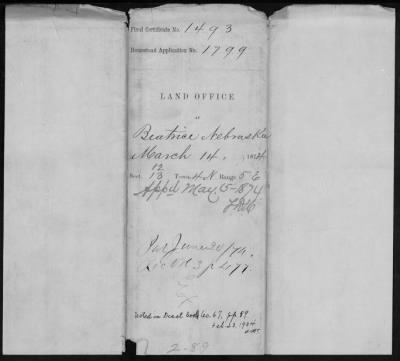 Final Certificate No. 1493
Homestead Application No. 1799
LAND OFFICE
Beatrice Nebraska
March 14, 1874
12
Sect. 13 Town 4 N Range 5 E
App'd May 5-1874
Pat June 20/74.
Rec Vol 3 p 477.
Noted in Tract Book Vol. 67, pp 89
2-89